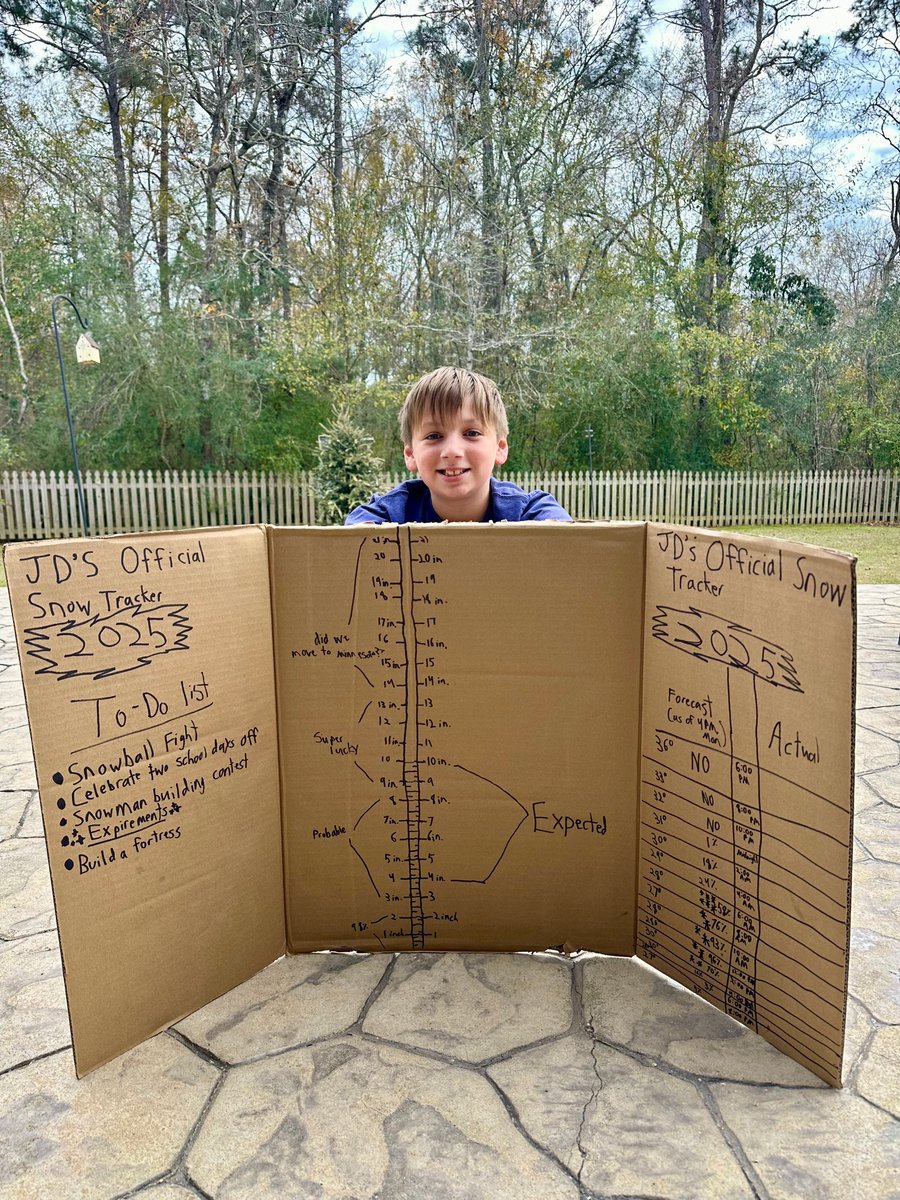 JD'S Official
Snow Tracker
2025
To-Do list
• Snowball Fight
• Celebrate two school days off
• Snowman building contest
• Expirements
• Build a fortress
21
20 20 in
19 in 19
18 18 in.
17 in 17
16 16 in
did we
move to minnesota?
15 in 15
14 14 in.
13 in 13
12 12 in.
Super
lucky
11 in 11
10 10 in.
9 in 9
8 8 in.
Expected
7 in 7
Probable
6 6 in.
5 in 5
4 4 in.
3 in 3
2 2 inch
98%
1 inch 1
JD's Official Snow
Tracker
2025
Forecast
(as of 4PM,
Mon)
Actual
36° NO 6:00 PM
33° NO 8:00 PM
32° NO 10:00 PM
31° 1% Midnight
29° 18% 2:00 AM
28° 24% 4:00 AM
27° 58% 6:00 AM
28° 76% 8:00 AM
93% 10:00 AM
30° 96%